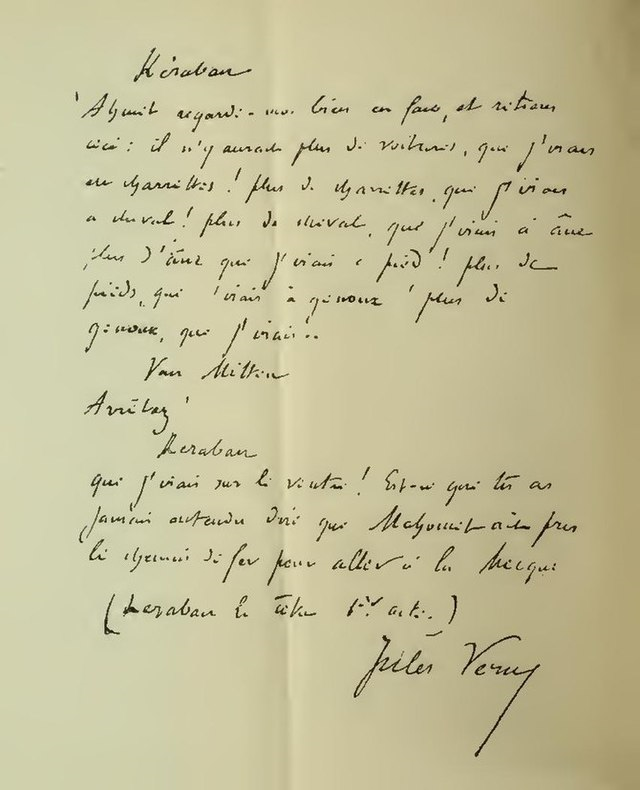 Kéraban
Ahmet regarde-moi bien en face, et retiens
ceci : il n'y aurait plus de voitures, que j'irais
en charrettes ! plus de charrettes, que j'irais
à cheval ! plus de cheval, que j'irais à âne
plus d'âne que j'irais à pied ! plus de
pieds, que j'irais à genoux ! plus de
genoux, que j'irais..
Van Mitten
Arrêtez !
Keraban
que j'irais sur le ventre ! Est-ce que tu as
jamais entendu dire que Mahomet ait pris
le chemin de fer pour aller à la Mecque
(Keraban le têtu 1er acte.)
Jules Verne